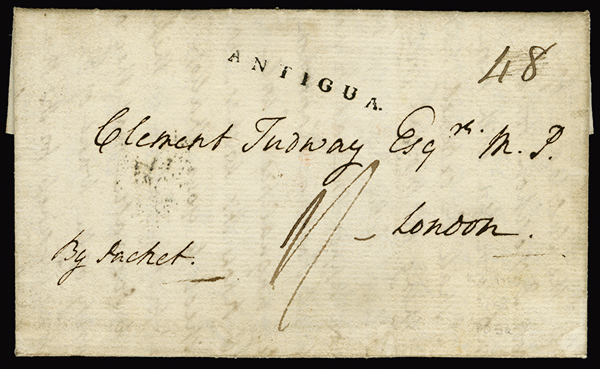 ANTIGUA.
48
Clement Tudway Esqre. M. P.
London.
By Packet.